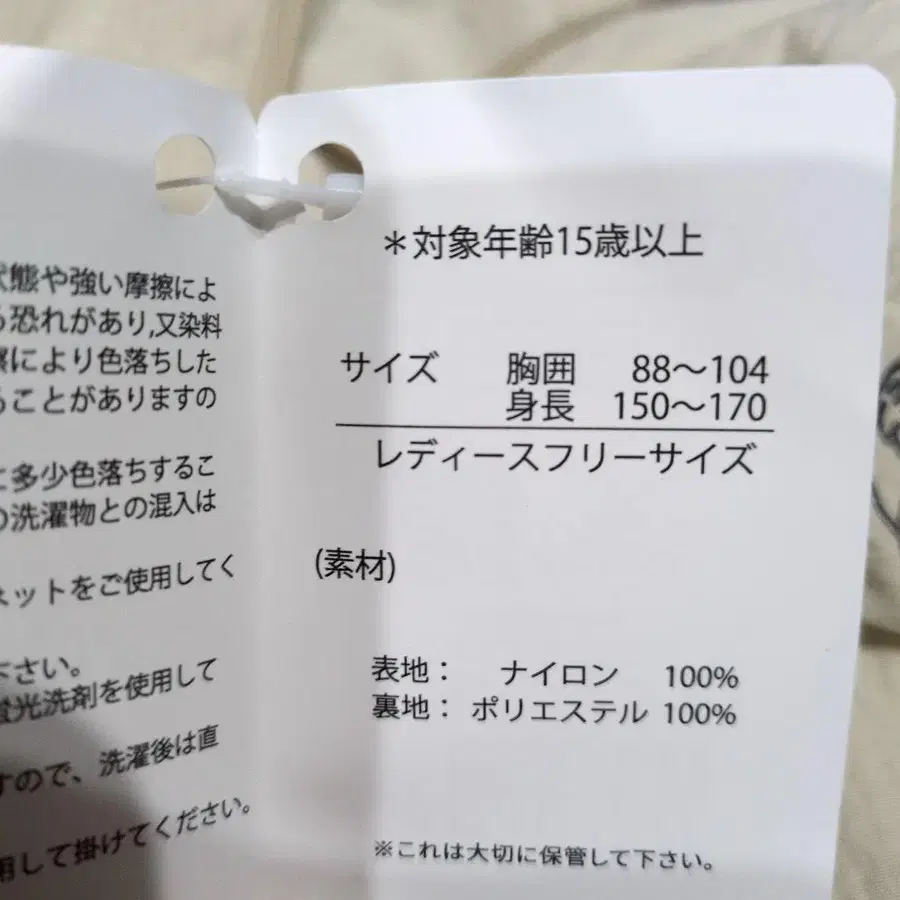 態や強い摩擦によ
恐れがあり,又染料
により色落ちした
ことがありますの
多少色落ちするこ
洗濯物との混入は
ネットをご使用してく
下さい。
蛍光洗剤を使用して
すので、洗濯後は直
用して掛けてください。
＊対象年齢15歳以上
サイズ 胸囲 88～104
身長 150～170
レディースフリーサイズ
(素材)
表地： ナイロン 100%
裏地： ポリエステル 100%
※これは大切に保管して下さい。